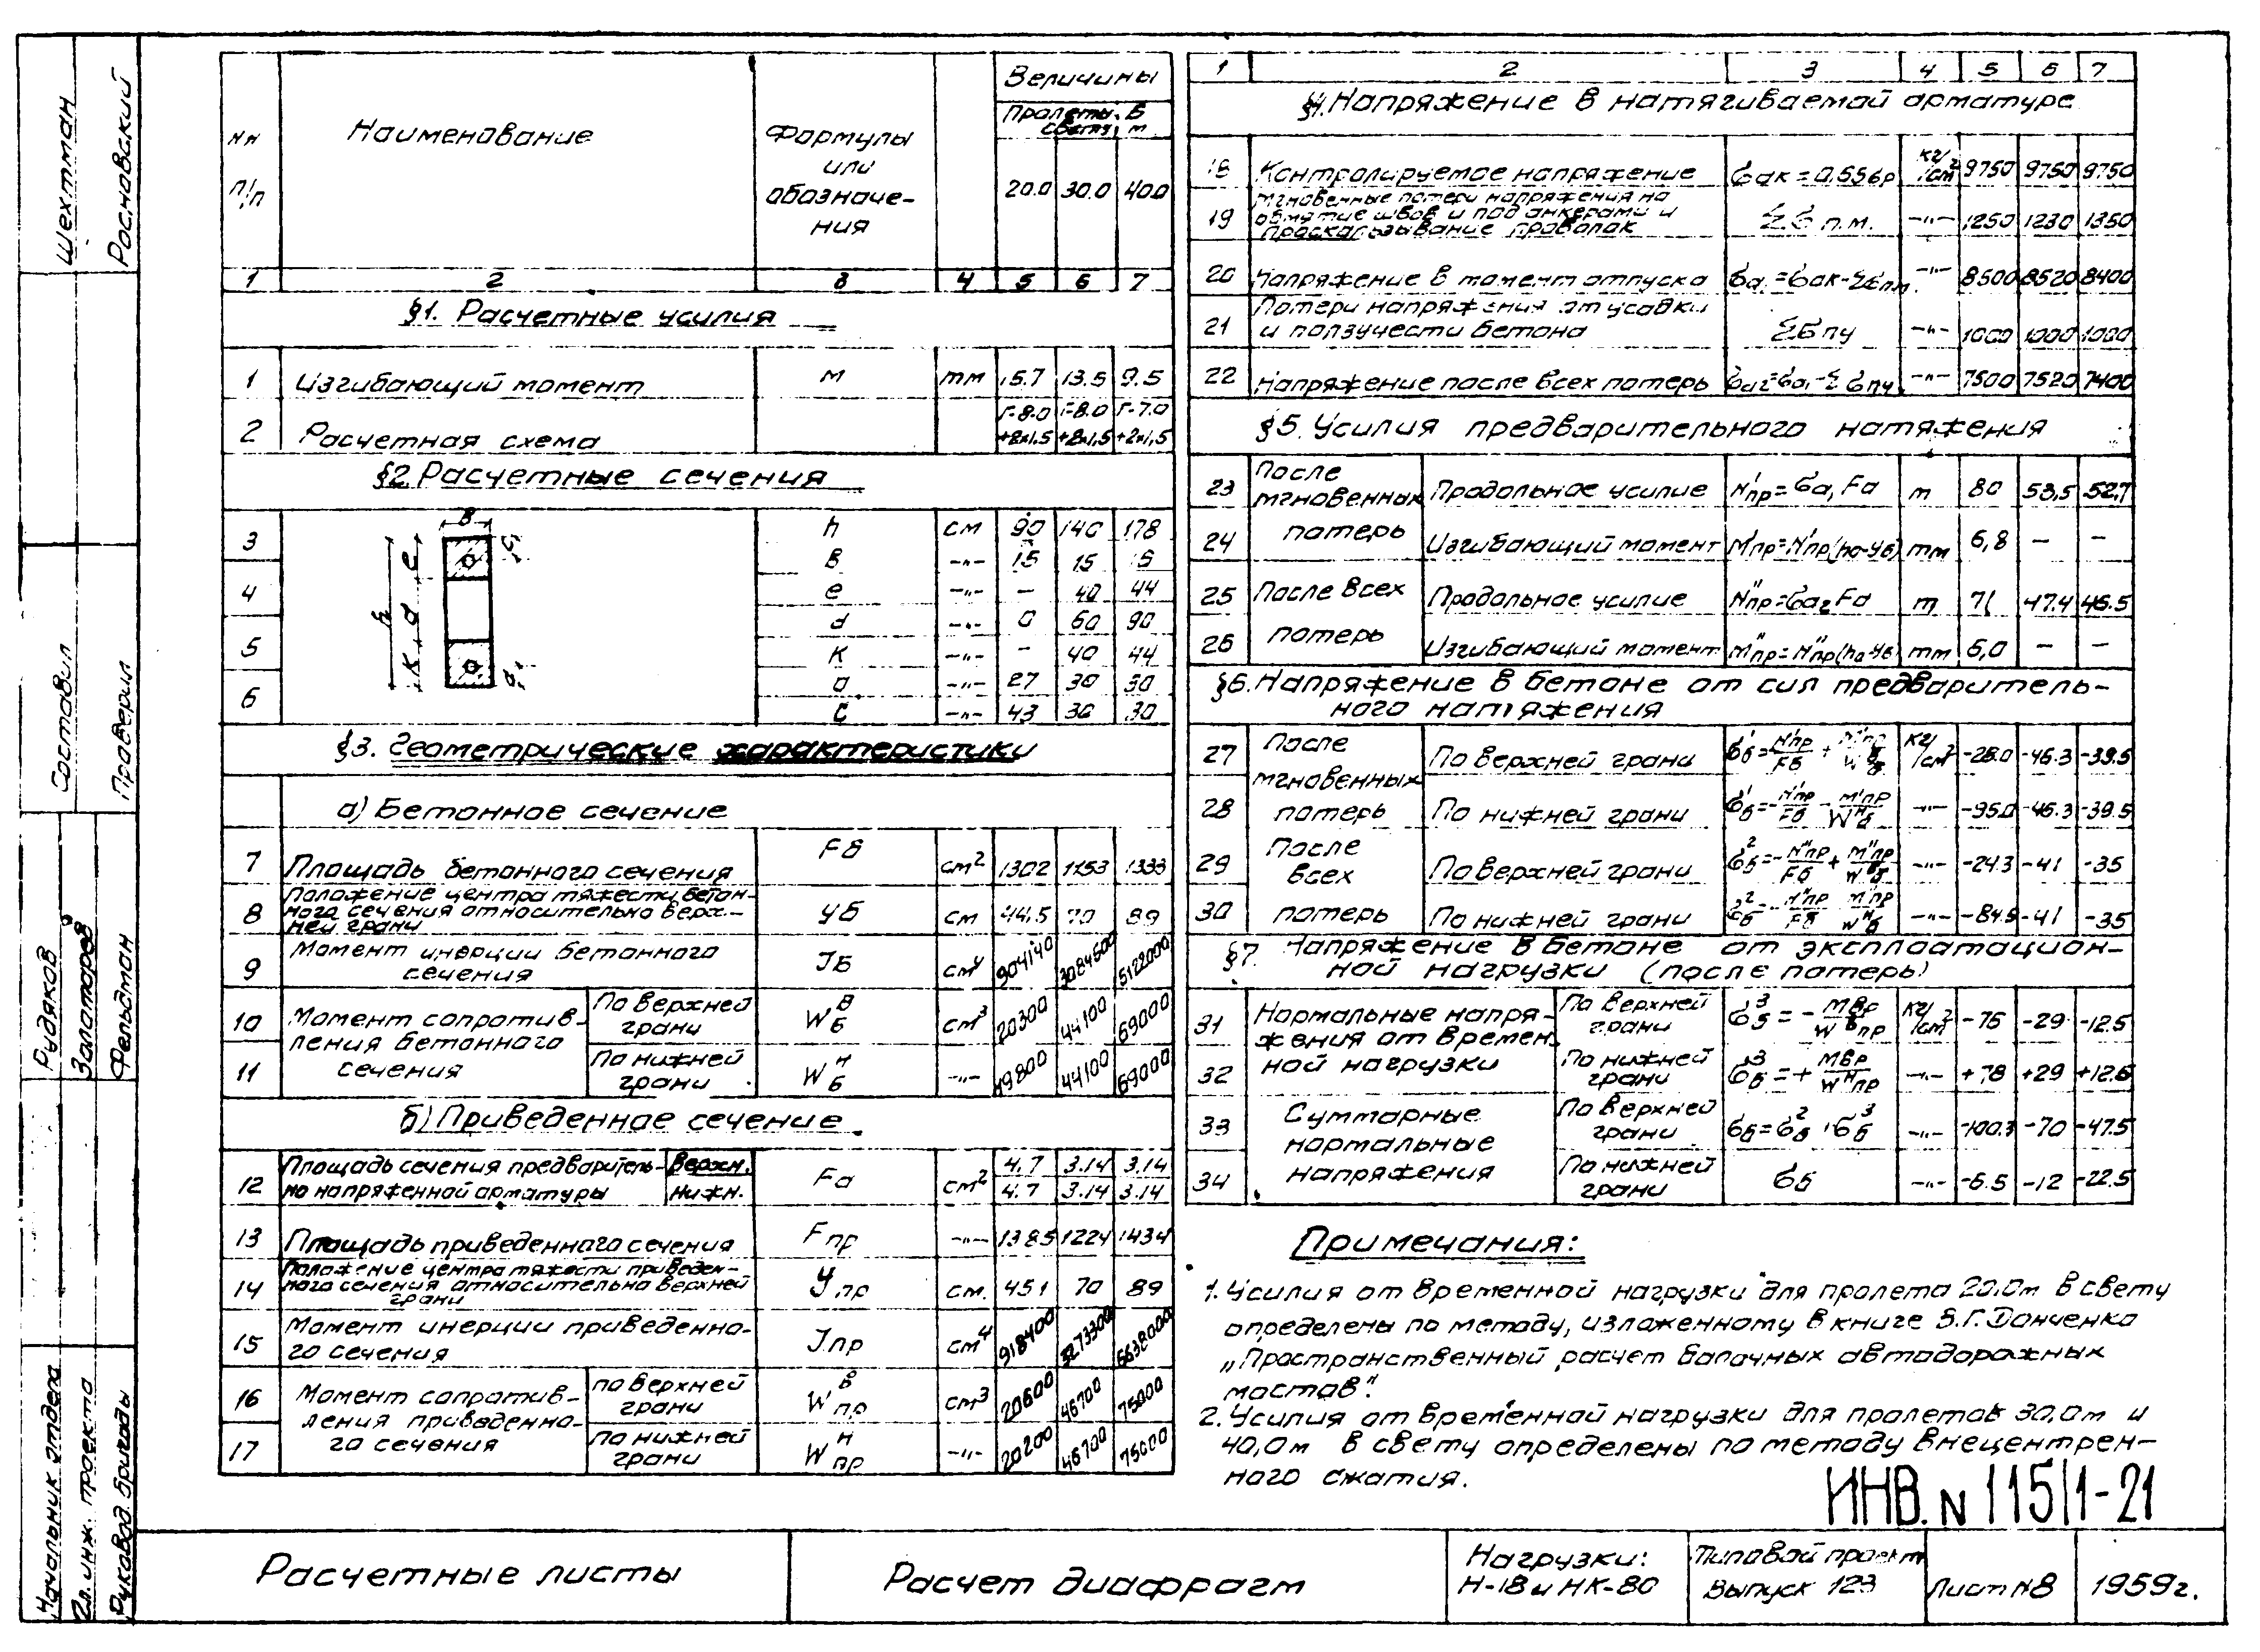 Шехтман
Росновский
Составил
Проверил
Рудяков
Золотарёв
Фельдман
Начальник отдела
Гл. инж. проекта
Руковод. бригады
NN п/п Наименование Формулы или обозначения Величины
Пролеты в свету, м
20.0 30.0 40.0
1 2 3 4 5 6 7
§1. Расчетные усилия
1 Изгибающий момент М тм 15.7 13.5 9.5
2 Расчетная схема Г-8.0 +2×1,5 Г-8.0 +2×1,5 Г-7.0 +2×1,5
§2. Расчетные сечения
3 h см 90 140 178
В -"- 15 15 15
4 е -"- - 40 44
d -"- 0 60 90
5 К -"- - 40 44
6 а -"- 27 30 30
с -"- 43 30 30
§3. Геометрические характеристики
а) Бетонное сечение
7 Площадь бетонного сечения Fб см² 1302 1153 1333
8 Положение центра тяжести бетонного сечения относительно верхней грани Уб см 44.5 70 89
9 Момент инерции бетонного сечения Jб см⁴ 904140 3084600 5122000
10 Момент сопротивления бетонного сечения По верхней грани Wбᴮ см³ 20300 44100 69000
11 По нижней грани Wбᴴ -"- 19800 44100 69000
б) Приведенное сечение
12 Площадь сечения предварительно напряженной арматуры Верхн. Fа см² 4.7 3.14 3.14
Нижн. 4.7 3.14 3.14
13 Площадь приведенного сечения Fпр -"- 1385 1224 1434
14 Положение центра тяжести приведенного сечения относительно верхней грани Упр см. 45.1 70 89
15 Момент инерции приведенного сечения Jпр см⁴ 918400 3273300 6638000
16 Момент сопротивления приведенного сечения по верхней грани Wпрᴮ см³ 20600 46700 75000
17 по нижней грани Wпрᴴ -"- 20200 46700 75000
1 2 3 4 5 6 7
§4. Напряжение в натягиваемой арматуре
18 Контролируемое напряжение бак = 0.55бр кг/см² 9750 9750 9750
19 Мгновенные потери напряжения на обжатие швов и под анкерами и проскальзывание проволок Σб п.м. -"- 1250 1230 1350
20 Напряжение в момент отпуска ба₁=бак-Σбпм. -"- 8500 8520 8400
21 Потери напряжения от усадки и ползучести бетона Σбпу -"- 1000 1000 1000
22 Напряжение после всех потерь ба₂=ба₁-Σбпу -"- 7500 7520 7400
§5. Усилия предварительного натяжения
23 После мгновенных потерь Продольное усилие N'пр=ба₁Fа т 80 53,5 52,7
24 Изгибающий момент М'пр=N'пр(ha-Уб) тм 6,8 - -
25 После всех потерь Продольное усилие N"пр=ба₂Fа т 71 47.4 46.5
26 Изгибающий момент М"пр=N"пр(ha-Уб тм 6,0 - -
§6. Напряжение в бетоне от сил предварительного натяжения
27 После мгновенных потерь По верхней грани б¹б=-N'пр/Fб + М'пр/Wᴮб кг/см² -28.0 -46.3 -39.5
28 По нижней грани б¹б=-N'пр/Fб - М'пр/Wᴴб -"- -95.0 -46.3 -39.5
29 После всех потерь По верхней грани б²б=-N"пр/Fб + М"пр/Wᴮб -"- -24.3 -41 -35
30 По нижней грани б²б=-N"пр/Fб - М"пр/Wᴴб -"- -84.5 -41 -35
§7. Напряжение в бетоне от эксплоатационной нагрузки (после потерь)
31 Нормальные напряжения от временной нагрузки По верхней грани б³б = - Мвр/Wᴮпр кг/см² -76 -29 -12.5
32 По нижней грани б³б = + Мвр/Wᴴпр -"- +78 +29 +12.5
33 Суммарные нормальные напряжения По верхней грани бб=б²б+б³б -"- -100.3 -70 -47.5
34 По нижней грани бб -"- -6.5 -12 -22.5
Примечания:
1. Усилия от временной нагрузки для пролета 20.0м в свету
определены по методу, изложенному в книге Б.Г. Донченко
„Пространственный расчет балочных автодорожных
мостов".
2. Усилия от временной нагрузки для пролетов 30,0м и
40,0м в свету определены по методу внецентрен-
ного сжатия.
ИНВ. N 115/1-21
Расчетные листы
Расчет диафрагм
Нагрузки:
Н-18 и НК-80
Типовой проект
Выпуск 123
Лист N8
1959г.